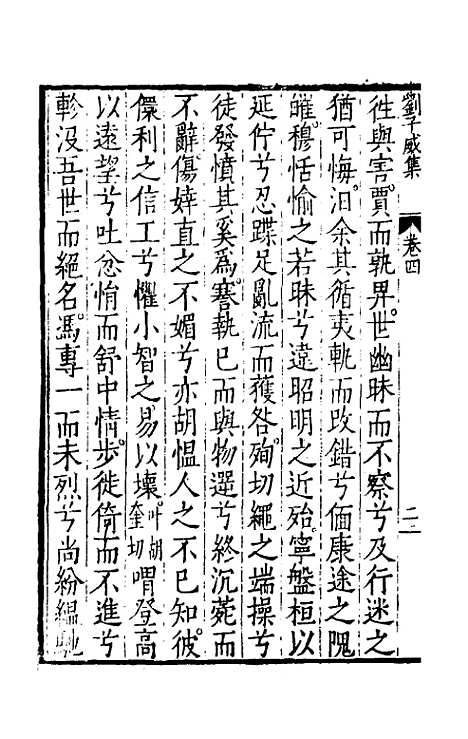 劉子威集 卷四 二二
徃與害賈而孰畀世幽昧而不察兮及行迷之
猶可悔汨余其循夷軌而改錯兮偭康途之隗
皠穆恬愉之若昧兮遠昭明之近殆寧盤桓以
延佇兮忍蹀足亂流而蒦咎殉切繩之端操兮
徒發憤其奚爲謇執已而與物選兮終沉薨而
不辭傷婞直之不媚兮亦胡愠人之不已知彼
儇利之信工兮懼小智之易以壞叶胡奎切喟登高
以遠望兮吐忿悁而舒中情步徙倚而不進兮
軫没吾世而絕名馮專一而未烈兮尚紛緼